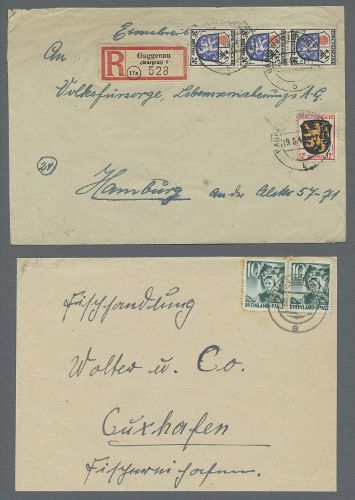 Einschreiben
An
Gaggenau
(Murgtal) 1
(17a) 523
Volksfürsorge, Lebensversicherungs A.G.
(24)
Hamburg an der Alster 57-71
10 10
RHEINLAND-PFALZ RHEINLAND-PFALZ
Fischhandlung
Wolter u. Co.
Cuxhafen
Fischereihafen.